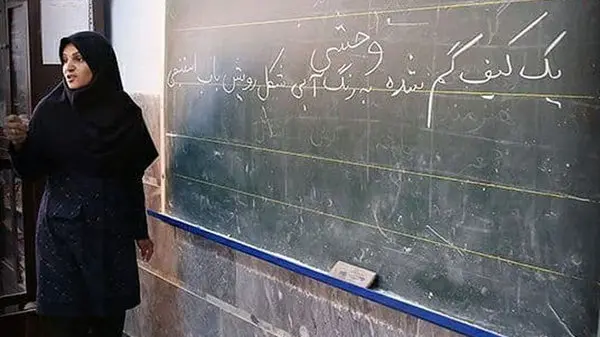 وحشی
یک کیف گم شده به رنگ آبی شکل رویش باب اسفنجی